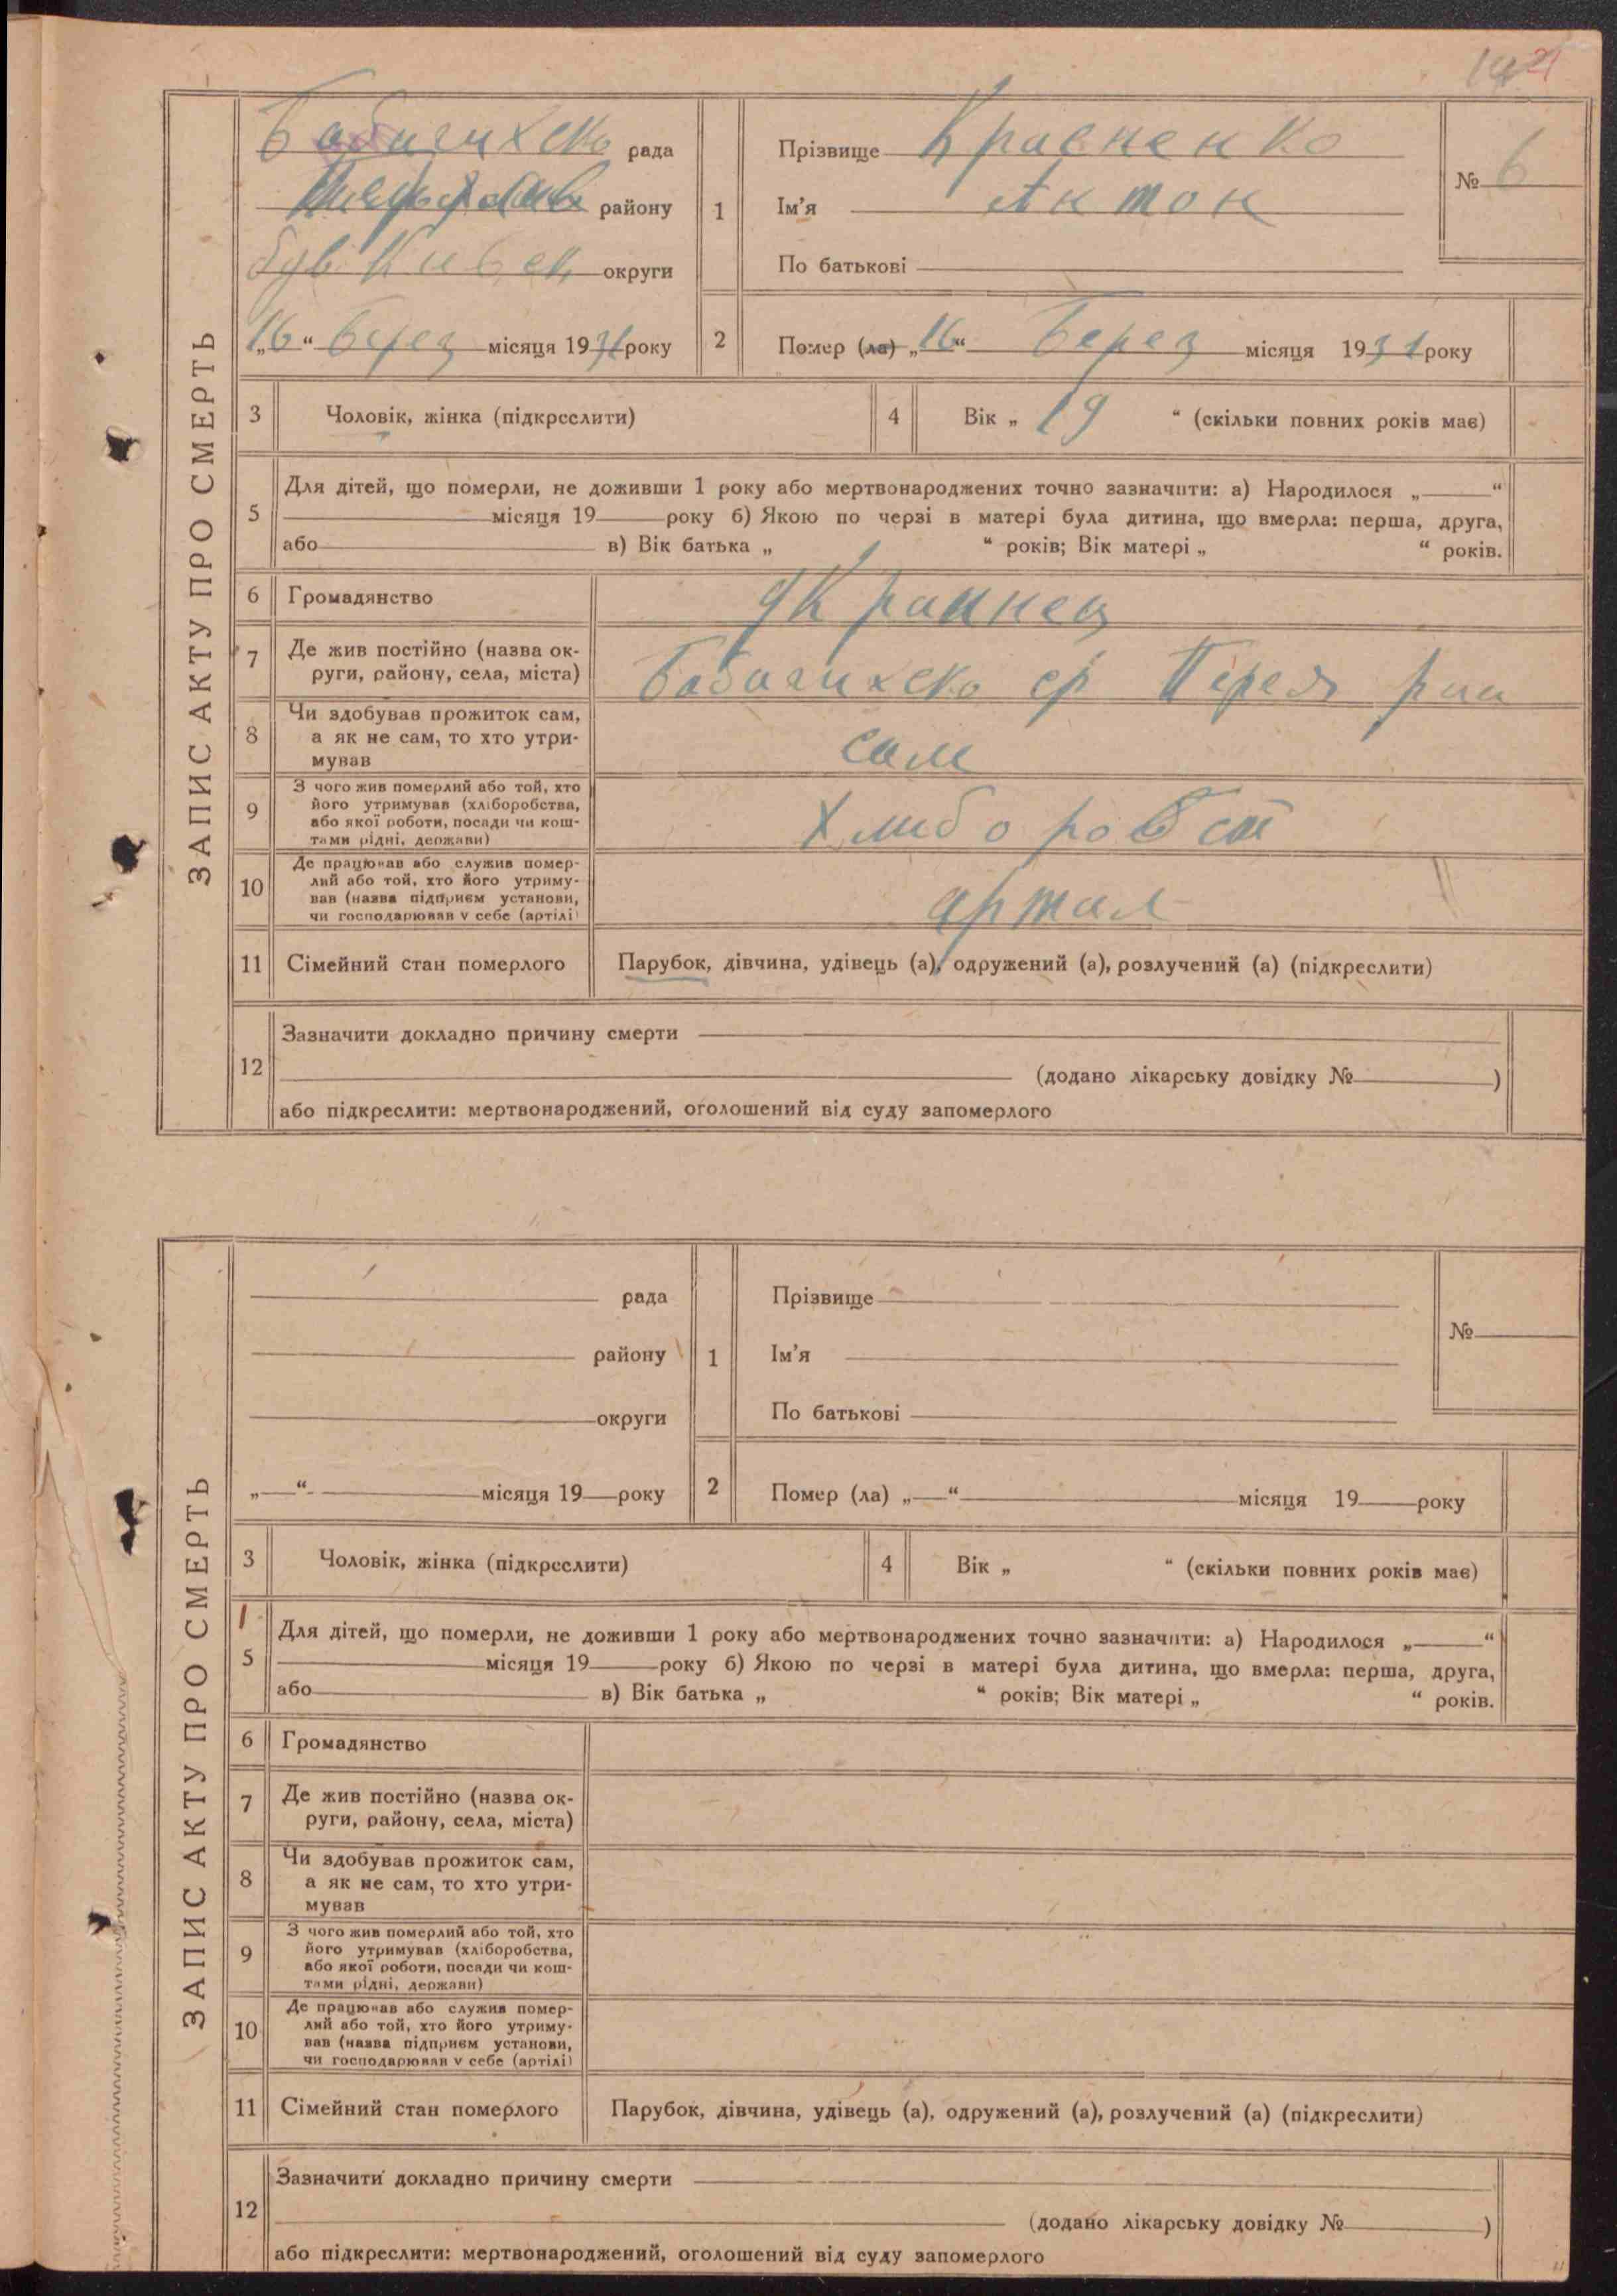 ЗАПИС АКТУ ПРО СМЕРТЬ
Бабачихско рада
району
був Киевск округи
„16“ берез місяця 1931 року
1
Прізвище Кравненко
Ім’я Антон
По батькові
№ 6
2
Помер (ла) „16“ берез місяця 1931 року
3
Чоловік, жінка (підкреслити)
4
Вік „ 19 “ (скільки повних років має)
5
Для дітей, що померли, не доживши 1 року або мертвонароджених точно зазначити: а) Народилося „ “
місяця 19 року б) Якою по черзі в матері була дитина, що вмерла: перша, друга,
або в) Вік батька „ “ років; Вік матері „ “ років.
6
Громадянство
Украинец
7
Де жив постійно (назва ок-
руги, району, села, міста)
Бабачихско ср Перея раи
8
Чи здобував прожиток сам,
а як не сам, то хто утри-
мував
сам
9
З чого жив померлий або той, хто
його утримував (хліборобства,
або якої роботи, посади чи кош-
тами рідні, держави)
Хлибо робст
10
Де працював або служив помер-
лий або той, хто його утриму-
вав (назва підприєм установи,
чи господарював у себе (артілі)
артил
11
Сімейний стан померлого
Парубок, дівчина, удівець (а), одружений (а), розлучений (а) (підкреслити)
12
Зазначити докладно причину смерти
(додано лікарську довідку № )
або підкреслити: мертвонароджений, оголошений від суду запомерлого
ЗАПИС АКТУ ПРО СМЕРТЬ
рада
району
округи
„ “ місяця 19 року
1
Прізвище
Ім’я
По батькові
№
2
Помер (ла) „ “ місяця 19 року
3
Чоловік, жінка (підкреслити)
4
Вік „ “ (скільки повних років має)
5
Для дітей, що померли, не доживши 1 року або мертвонароджених точно зазначити: а) Народилося „ “
місяця 19 року б) Якою по черзі в матері була дитина, що вмерла: перша, друга,
або в) Вік батька „ “ років; Вік матері „ “ років.
6
Громадянство
7
Де жив постійно (назва ок-
руги, району, села, міста)
8
Чи здобував прожиток сам,
а як не сам, то хто утри-
мував
9
З чого жив померлий або той, хто
його утримував (хліборобства,
або якої роботи, посади чи кош-
тами рідні, держави)
10
Де працював або служив помер-
лий або той, хто його утриму-
вав (назва підприєм установи,
чи господарював у себе (артілі)
11
Сімейний стан померлого
Парубок, дівчина, удівець (а), одружений (а), розлучений (а) (підкреслити)
12
Зазначити докладно причину смерти
(додано лікарську довідку № )
або підкреслити: мертвонароджений, оголошений від суду запомерлого